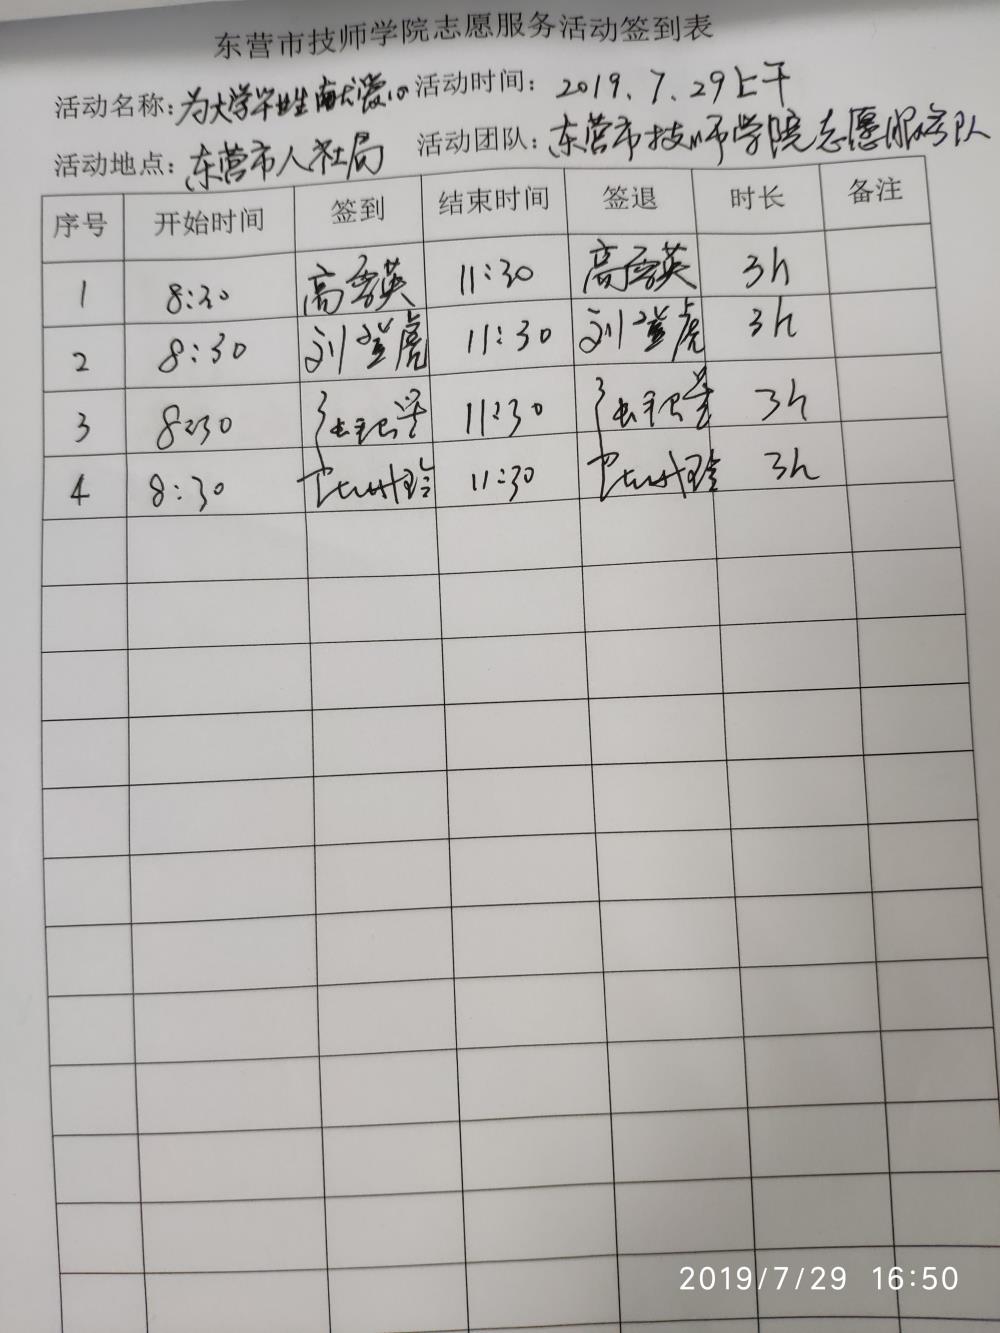 东营市技师学院志愿服务活动签到表
活动名称:为大学毕业生献爱心 活动时间: 2019.7.29上午
活动地点:东营市人社局 活动团队:东营市技师学院志愿服务队
序号 开始时间 签到 结束时间 签退 时长 备注
1 8:30 高雪英 11:30 高雪英 3h
2 8:30 刘登虎 11:30 刘登虎 3h
3 8:30 11:30 3h
4 8:30 11:30 3h
2019/7/29 16:50